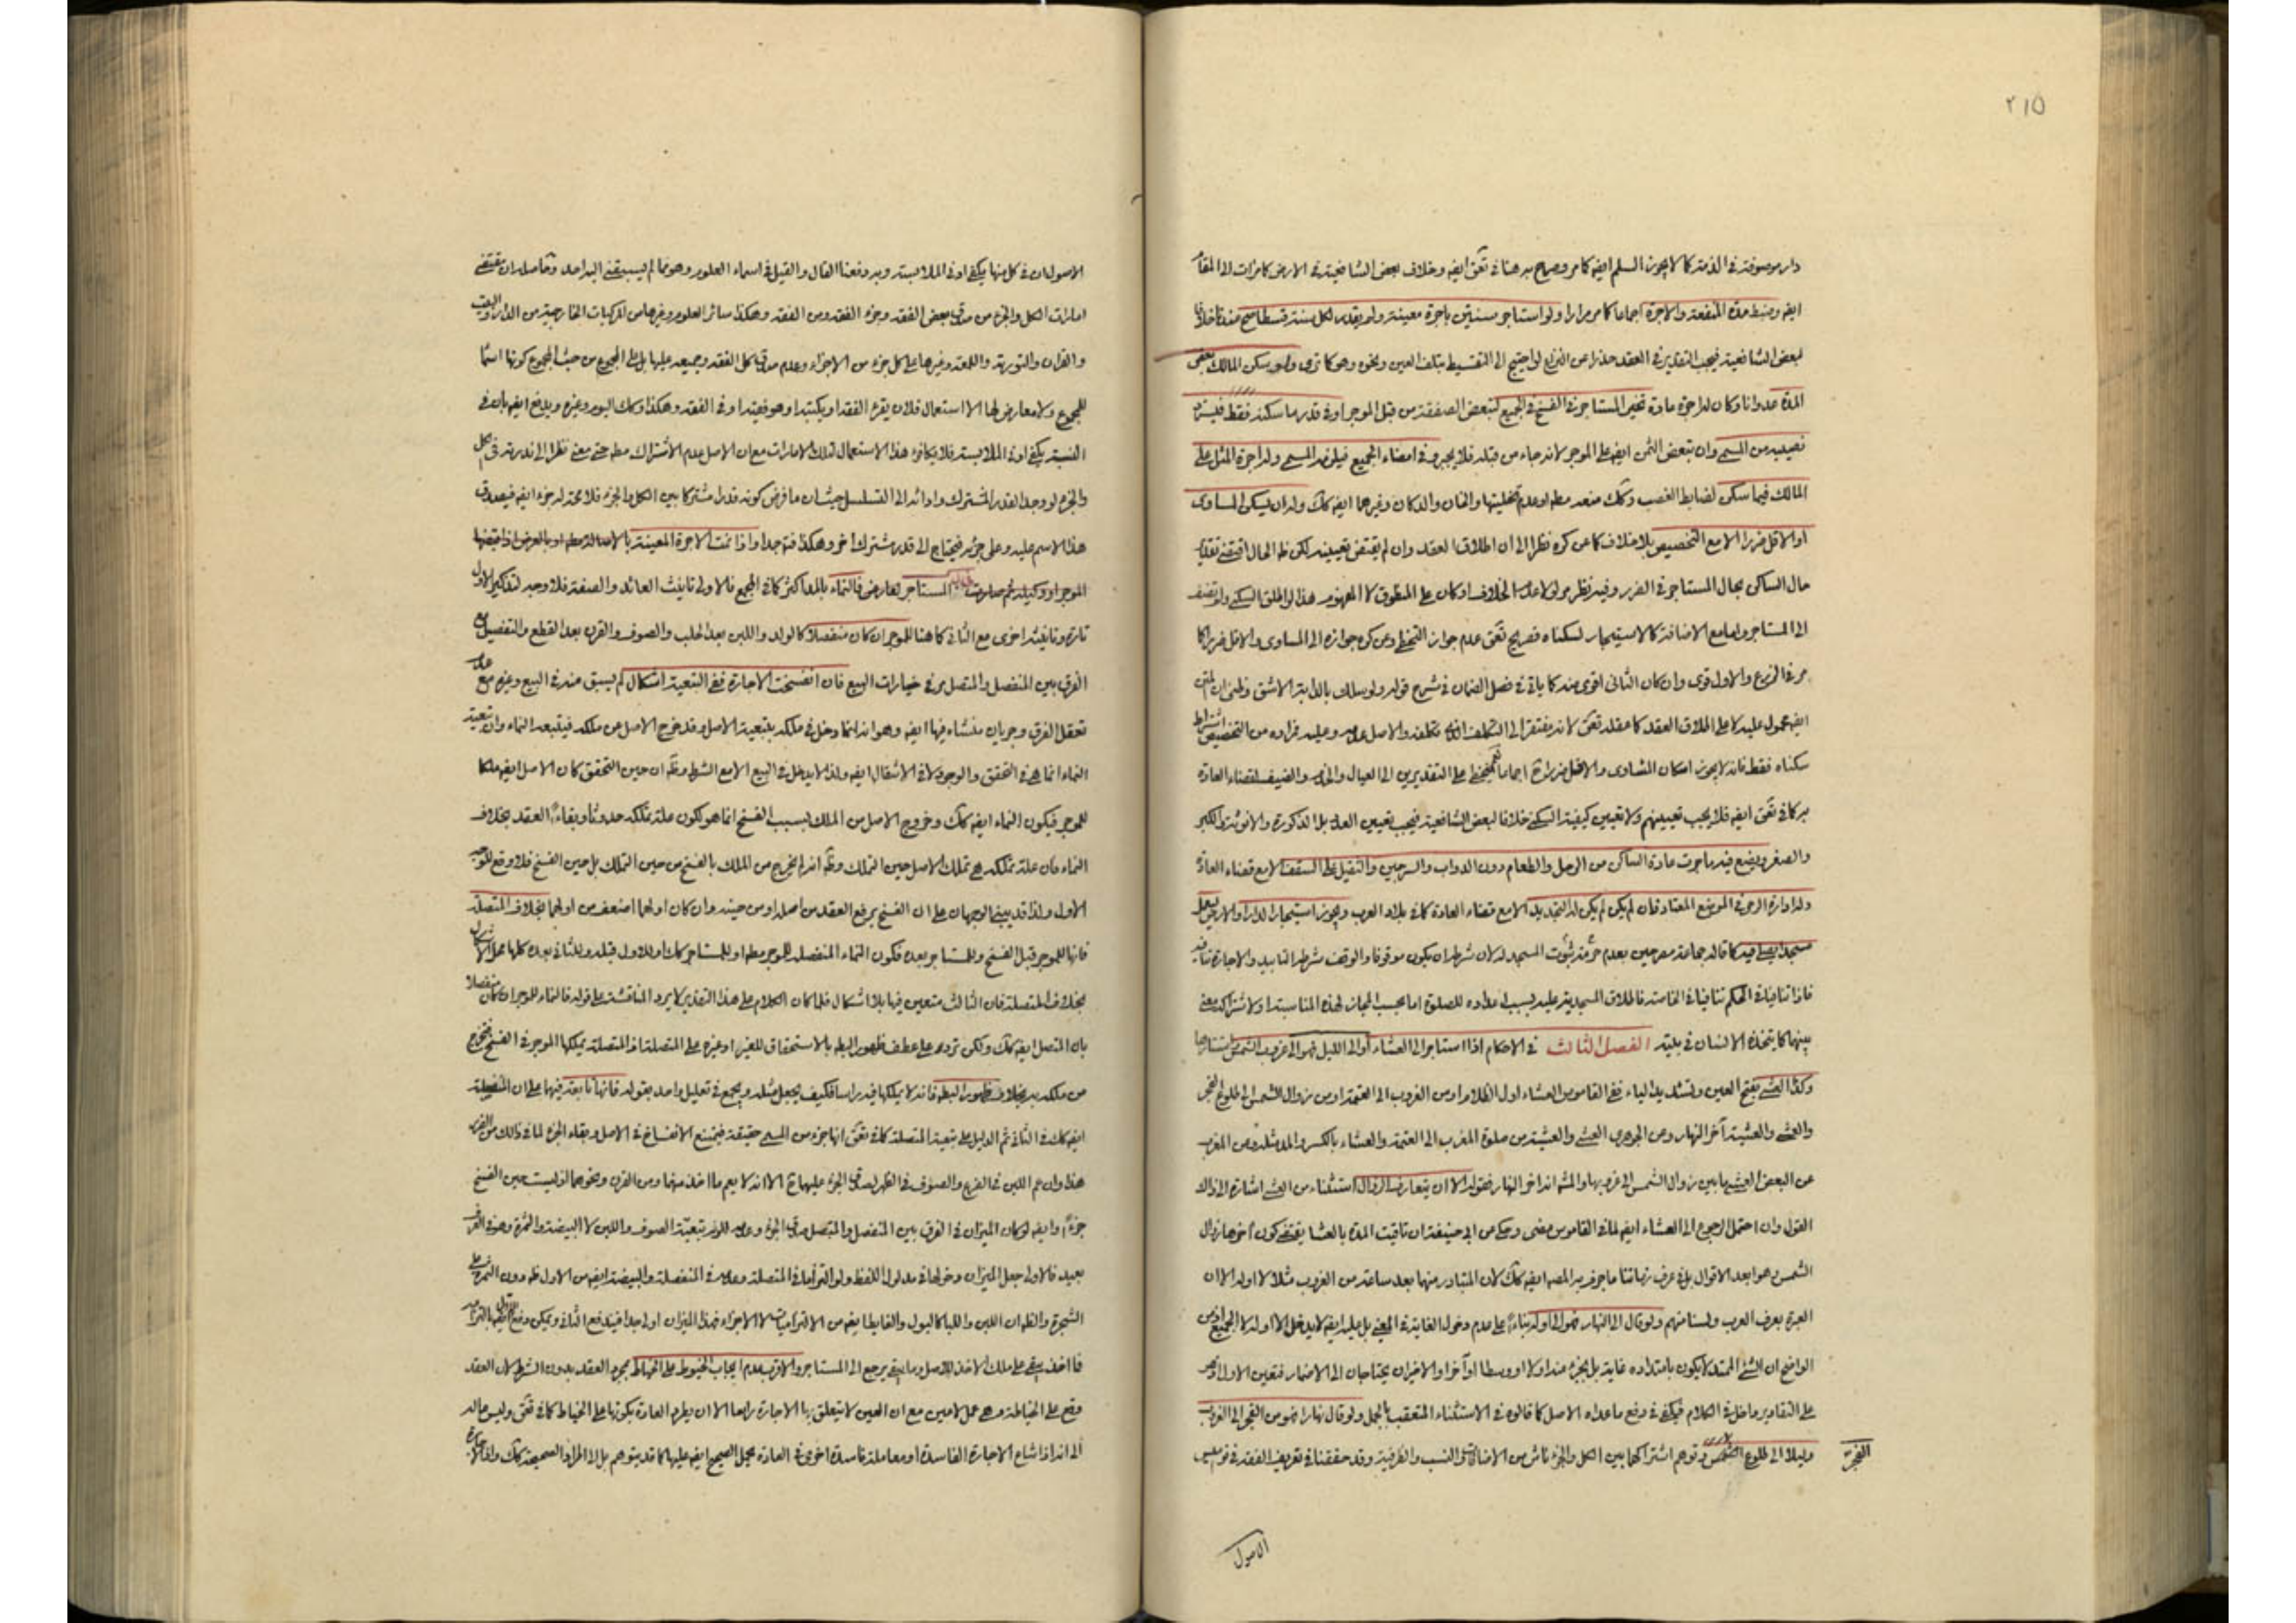 ٢١٥
دار موصوفة في الذمة كما لا يجوز السلم ايضا كما مر وصرح به هنا في تعق ايضا وخلاف بعض الشافعية في الارض كامرات الى المقام
ايضا وضبط مدة المنفعة والاجرة اجماعا كما مر مرارا ولو استاجر سنتين باجرة معينة ولم يقدر لكل سنة قسطا صح عندنا خلافا
لبعض الشافعية فيجب التقدير في العقد حذرا عن النزاع لو احتيج الى التقسيط بتلف العين ونحوه وهو كما ترى ولو سكن المالك بعض
المدة عدوانا وكان له اجرة عادة تخير المستاجر في الفسخ في الجميع لتبعض الصفقة من قبل الموجر او في قدر ما سكنه فقط فيسترد
نصيبه من المسمى وان تبعض الثمن ايضا على الموجر لانه جاء من قبله فلا يجبر وفي امضاء الجميع فيلزمه المسمى وله اجرة المثل على
المالك فيما سكن لضابط الغصب وكك منعه مطه او عدم تخليتها والخان والدكان وغيرهما ايضا كك وله ان يسكن المساوى
او الاقل ضررا الا مع التخصيص بلا خلاف كما عن كره نظرا الى ان اطلاق العقد وان لم يقتض تعيينه لكن ظ الحال اقتضى تقدير
حال الساكن بحال المستاجر في الضرر وفيه نظر مر لولا عدم الخلاف اذ كان على المنطوق لا المفهوم هذا لو اطلق السكنى ولو تضف
الى المستاجر واما مع الاضافة كالاستيجار لسكناه فصريح تعق عدم جواز التخطي وعن كره جوازه الى المساوى والاقل ضررا كما
مر في الزرع والاول قوى وان كان الثاني اقوى منه كما ياتي في فصل الضمان في شرح قوله ولو سلك بالدابة الاشق وظنى ان المتن
ايضا محمول عليه لا على اطلاق العقد كما عقله تعق لانه مفتقر الى التكلف الذي تكلفه والاصل عدمه وعليه فمراده من التخصيص اشتراط
سكناه فقط فانه لا يجوز اسكان المساوى والاقل ضررا ح اجماعا نعم يتخطى على التقديرين الى العيال والخدم والضيف لقضاء العادة
به كما في تعق ايضا فلا يجب تعيينهم ولا تعيين كيفية السكنى خلافا لبعض الشافعية فيجب تعيين العدد بل الذكورة والانوثة والكبر
والصغر ويضع فيه ما جرت عادة الساكن من الرحل والطعام دون الدواب والسرجين والثقيل على السقف الا مع قضاء العادة
وله ادارة الرحى في الموضع المعتاد فان لم يكن لم يكن له التجديد الا مع قضاء العادة كما في بلاد العرب ويجوز استيجار الدار والارض ليعمل
مسجدا يصلى فيه كما قاله جماعة مصرحين بعدم حرمة ثبوت المسجد له لان شرطه ان يكون موقوفا والوقف شرطه التابيد والاجارة تنافيه
فاذا تنافيا في الحكم تنافيا في الخاصة فاطلاق المسجدية عليه بسبب اعداده للصلوة اما بحسب المجاز لهذه المناسبة او لاشتراكه معنى
بينهما كما يتخذه الانسان في بيته الفصل الثالث في الاحكام اذا استاجر الى العشاء او الى الليل فهو الى غروب الشمس
وكذا العشى بفتح العين وتشديد الياء ففي القاموس العشاء اول الظلام او من الغروب الى العتمة او من زوال الشمس الى طلوع الفجر
والعشى والعشية آخر النهار وعن الجوهري العشى والعشية من صلوة المغرب الى العتمة والعشاء بالكسر والمد مثله وعن المغرب
عن البعض العشى ما بين زوال الشمس الى غروبها والمشه انه اخر النهار فقوله الا ان يتعارف الزوال استثناء من العشى اشارة الى ذلك
القول وان احتمل الرجوع الى العشاء ايضا لما في القاموس مضى وحكى عن ابى حنيفة ان تاقيت المدة بالعشا يقتضى كون آخرها زوال
الشمس وهو ابعد الاقوال بل في عرف زماننا ما جرى فيه المصه ايضا كك لان المتبادر منها بعد ساعة من الغروب مثلا لا اوله الا ان
العبرة بعرف العرب ولسنا منهم ولو قال الى النهار فهو الى اوله بناء على عدم دخول الغاية في المغيى بل عليه ايضا لا يدخل الا اوله لا الجميع اذ من
الواضح ان الشئ الممتد لا يكون بامتداده غاية بل بجزء منه اولا او وسطا او آخرا والاخيران يحتاجان الى الاضمار فتعين الاول
على التقادير داخل في الكلام فيكفى في دفع ما عداه الاصل كما قالوه في الاستثناء المتعقب بالجمل ولو قال نهارا فهو من الفجر الى الغروب
وليلا الى طلوع الفجر وتوهم اشتراكها بين الكل والجزء ناش من الاضافة والنسب والظرفية وقد حققنا في تعريف الفقه في
الفجر
الاصول
الاصول ان في كل منها يكفى ادنى الملابسة وبه دفعنا القال والقيل في اسماء العلوم وهو مما لم يسبقنى اليه احد وحاصله ان مقتضى
امارات الكل والجزء من صدق بعض الفقه وجزء الفقه ومن الفقه وهكذا سائر العلوم وغيرها من المركبات الخارجية من الدار والبيت
والقران والتورية واللمعة وغيرها على كل جزء من الاجزاء وعدم صدق كل الفقه وجميعه عليها بل على المجموع من حيث المجموع كونها اسما
للمجموع ولا معارض لها الا استعمال فلان يقرء الفقه او يكتبه او هو فقيه او في الفقه وهكذا وكك اليوم وغيره ويدفع ايضا بان في
النسبة يكفى ادنى الملابسة فلا يكافؤ هذا الاستعمال لتلك الامارات مع ان الاصل عدم الاشتراك مطه حتى معنى نظرا الى ندرته في الكل
والجزء لو وجد القدر المشترك واوائد الى التسلسل حيث ان ما فرض كونه قدرا مشتركا بين الكل والجزء فلا محة له جزء ايضا فيصدق
هذا الاسم عليه وعلى جزئه فيحتاج الى قدر مشترك اخر وهكذا فته جدا واذا نمت الاجرة المعينة بالاصالة مطه او بالعرض اذا قبضها
الموجر او وكيله ثم صارت للمستاجر لعارض فالنماء بالمد اكثر كما في المجمع فالاولى تانيث العائد والصفة فلا وجه لتذكير الاول
تارة وتانيثه اخرى مع الثاني كما هنا للموجر ان كان منفصلا كالولد واللبن بعد الحلب والصوف والقرن بعد القطع والتفصيل مع
الفرق بين المنفصل والمتصل مر في خيارات البيع فان انفسخت الاجارة ففي التبعية اشكال لم يسبق منه في البيع وغيره مع عدم
تعقل الفرق وجريان منشاه فيها ايضا وهو انه انما دخل في ملكه بتبعية الاصل وقد خرج الاصل عن ملكه فيتبعه النماء وان تبعية
النماء انما هى في التحقق والوجود لا في الانتقال ايضا ولذا لا يدخل في البيع الا مع الشرط وظه ان حين التحقق كان الاصل ايضا ملكا
للموجر فيكون النماء ايضا كك وخروج الاصل من الملك بسبب الفسخ انما هو لكون علة تملكه حدوثا وبقاء العقد بخلاف
النماء فان علة تملكه هى تملك الاصل حين التملك وظه انه لم يخرج من الملك بالفسخ من حين التملك بل حين الفسخ فلا وقع للوجه
الاول ولذا قد يبنى الوجهان على ان الفسخ يرفع العقد من اصله او من حينه وان كان اولهما اضعف من اولهما بخلاف المتصلة
فانها للموجر قبل الفسخ وللمستاجر بعده فكون النماء المنفصلة للموجر مطه او للمستاجر كك او للاول قبله وللثاني بعده كلها محل الاشكال
بخلاف المتصلة فان الثالث متعين فيها بلا اشكال فلما كان الكلام على هذا التقدير لا يرد المناقشة على قوله فالنماء للموجر ان كان منفصلا
بان المتصل ايضا كك ولكن ترد على عطف ظهور البطه بالاستحقاق للغير او غيره على المتصلة اذ المتصلة يملكها الموجر وفي الفسخ تخرج
من ملكه به بخلاف ظهور البطه فانه لا يملكها فيه راسا فكيف يجعل مثله ويجمع في تعليل واحد بقوله فانها تابعة فيهما على ان المنفصلة
ايضا كك في الثاني ثم الدليل على تبعية المتصلة كما في تعق انها جزء من المسمى حقيقة فيمتنع الانفساخ في الاصل وبقاء الجزء لما في ذلك من الضرر
هذا وان عم اللبن في الضرع والصوف في الظهر لصدق الجزء عليهما ح الا انه لا يعم ما اخذ منهما ومن القرن ونحوهما اذ ليست حين الفسخ
جزءا وايضا لو كان الميزان في الفرق بين المنفصل والمتصل صدق الجزء وعدمه للزم تبعية الصوف واللبن لا البيضة والثمرة وهو في العرف
بعيد فالاولى جعل الميزان دخولها في مدلول اللفظ ولو التزاما في المتصلة وعدمه في المنفصلة والبيضة ايضا من الاول ظه دون الثمرة على
الشجرة والظه ان اللبن واللبا كالبول والغايط ايضا من الالتزاميات لا الاجزاء فهذا الميزان اولى جدا فيندفع الثاني ويمكن دفع الاول ايضا بالتزام
فما اخذ يبقى على ملك الاخذ للاصل وما بقى يرجع الى المستاجر والاقرب عدم ايجاب الخيوط على الخياط بمجرد العقد بدون الشرط لان العقد
وقع على الخياطة وهى عمل لا عين مع ان العين لا يتعلق بها الاجارة راسا الا ان يطرد العادة بكونها على الخياط كما في تعق وليس ما له
الى انه اذا شاع الاجارة الفاسدة او معاملة فاسدة اخرى في العادة يحمل الصحيح ايضا عليها كما قد يتوهم بل الى اطراد الصحيحة كك واذا